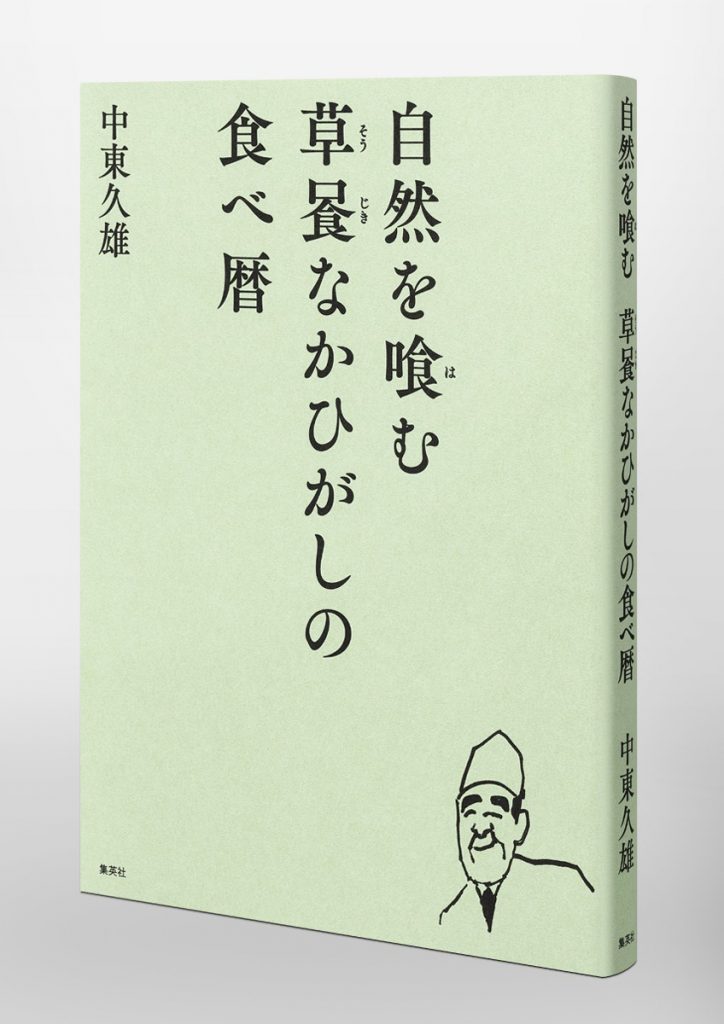 自然を喰む
は
草喰なかひがしの
そう じき
食べ暦
中東久雄
集英社
自然を喰む 草喰なかひがしの食べ暦 中東久雄
集英社